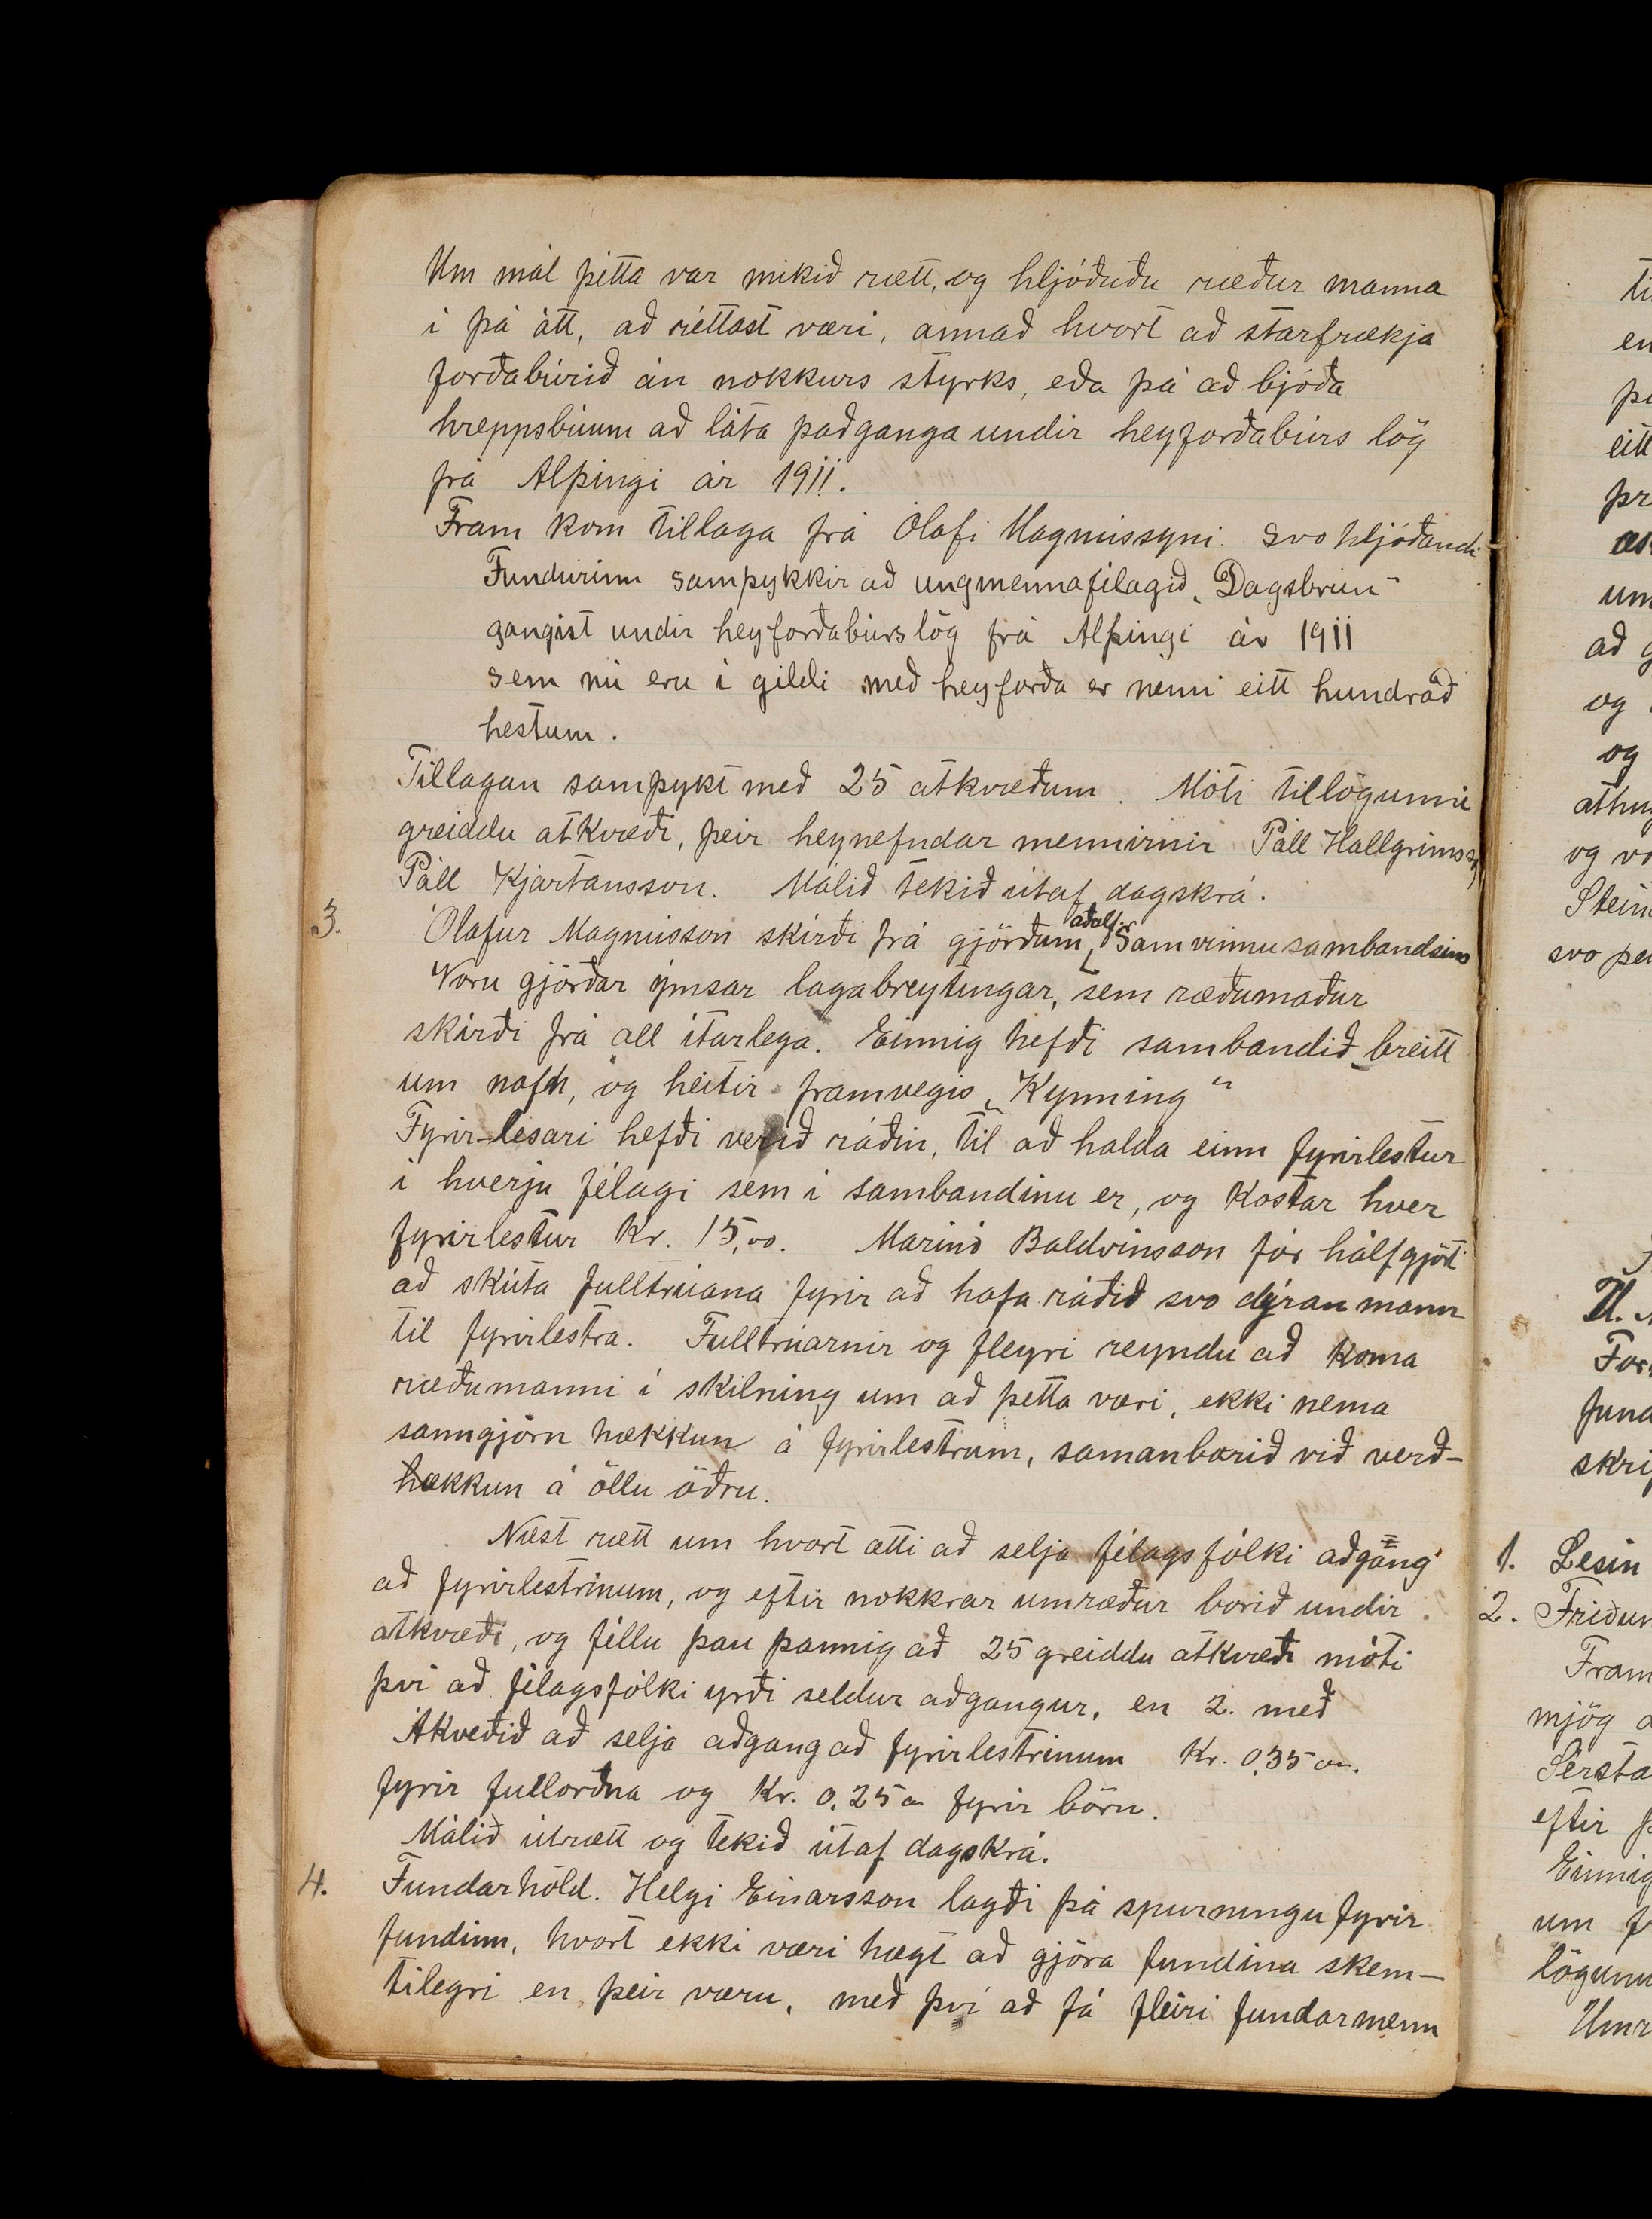 Um mál þetta var mikið rætt, og hljóðuðu ræður manna
í þá átt, að réttast væri, annað hvort að starfrækja
forðabúrið án nokkurs styrks, eða þá að bjóða
hreppsbúum að láta það ganga undir heyforðabúrs lög
frá Alþingi ár 1911.
Fram kom tillaga frá Ólafi Magnússyni svo hljóðandi
Fundurinn samþykkir að ungmennafélagið „Dagsbrún“
gangist undir heyforðabúrslög frá Alþingi ár 1911
sem nú eru í gildi með heyforða er nemi eitt hundrað
hestum.
Tillagan samþykt með 25 atkvæðum. Móti tillögunni
greiddu atkvæði, þeir heynefndar mennirnir Páll Hallgríms og
Páll Kjartansson. Málið tekið útaf dagskrá.
3. Ólafur Magnússon skírði frá gjörðum aðalf. Samvinnusambandsins
Voru gjörðar ýmsar lagabreytingar, sem ræðumaður
skírði frá all ítarlega. Einnig hefði sambandið breitt
um nafn, og heitir framvegis „Kynning“
Fyrir-lesari hefði verið ráðin, til að halda einn fyrirlestur
í hverju félagi sem í sambandinu er, og kostar hver
fyrirlestur Kr. 15,00. Marinó Baldvinsson fór hálfgjört
að skúta fulltrúana fyrir að hafa ráðið svo dýran mann
til fyrirlestra. Fulltrúarnir og fleyri reyndu að koma
ræðumanni í skilning um að þetta væri, ekki nema
sanngjörn hækkun á fyrirlestrum, samanborið við verð-
hækkun á öllu öðru.
Næst rætt um hvort ætti að selja félagsfólki aðgang
að fyrirlestrinum, og eftir nokkrar umræður borið undir
atkvæði, og féllu þau þannig að 25 greiddu atkvæði móti
því að félagsfólki yrði seldur aðgangur, en 2. með
Ákveðið að selja aðgang að fyrirlestrinum Kr. 0,35 au.
fyrir fullorðna og Kr. 0,25 a fyrir börn.
Málið útrætt og tekið útaf dagskrá.
4. Fundarhöld. Helgi Einarsson lagði þá spurningu fyrir
fundinn, hvort ekki væri hægt að gjöra fundina skem-
tilegri en þeir væru, með því að fá fleiri fundarmenn
1. Lesin
2.
mjög
eftir
Einnig
um